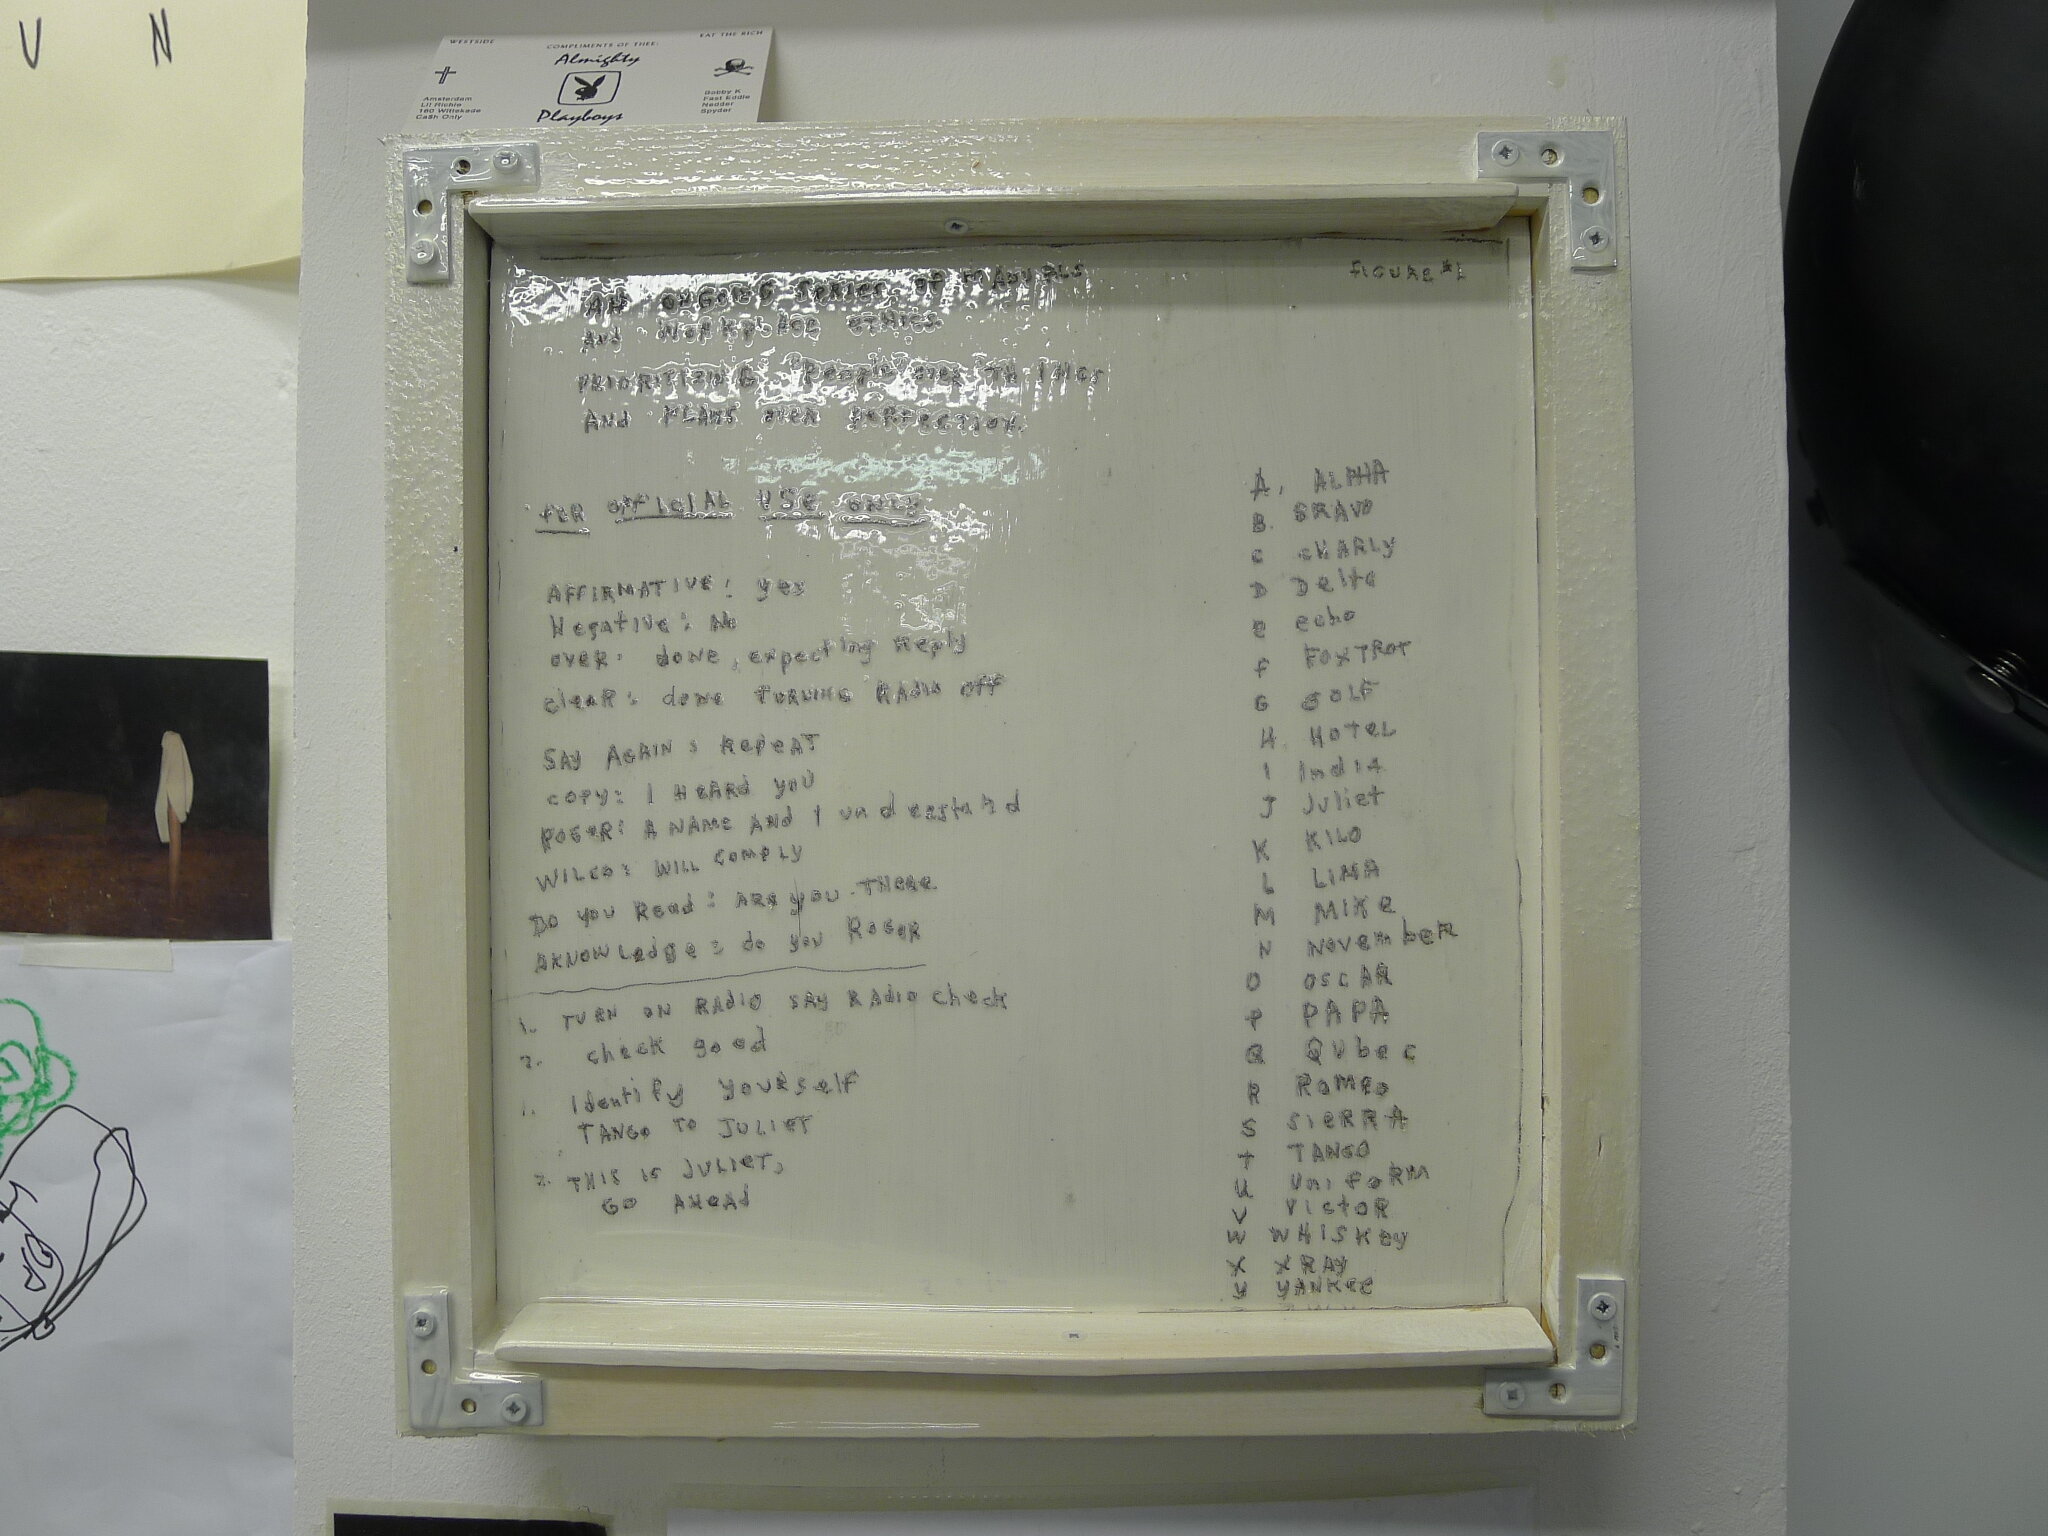 U N
WESTSIDE
COMPLIMENTS OF THEE:
EAT THE RICH
Almighty
Playboys
Amsterdam
Lil Richie
160 Wittekade
Ca$h Only
Bobby K
Fast Eddie
Nedder
Spyder
FIGURE #1
AN ONGOING SERIES OF MANUALS
AND WORKPLACE ETHICS
PRIORITIZING People over THINGS
AND FLAWS OVER PERFECTION.
FOR OFFICIAL USE ONLY
AFFIRMATIVE: yes
Negative: No
OVER: DONE, expecting Reply
cleaR: done TURNING RADIO OFF
SAY AGAIN: REPEAT
COPY: I HEARD YOU
ROGER: A NAME AND I understand
WILCO: WILL COMPLY
DO you Read: ARE you THERE
AKNOWLedge: do you ROGER
1. TURN ON RADIO SAY RADIO check
2. check good
1. Identify yourself
TANGO TO JULIET
2. THIS IS JULIET,
GO AHEAD
A. ALPHA
B. BRAVO
C CHARLY
D Delta
e echo
F FOXTROT
G GOLF
H HOTEL
I India
J Juliet
K KILO
L LIMA
M MIKE
N NOVEMBER
O OSCAR
P PAPA
Q QUbec
R ROMEO
S SIERRA
T TANGO
U UNIFORM
V VICTOR
W WHISKEY
X XRAY
Y YANKEE